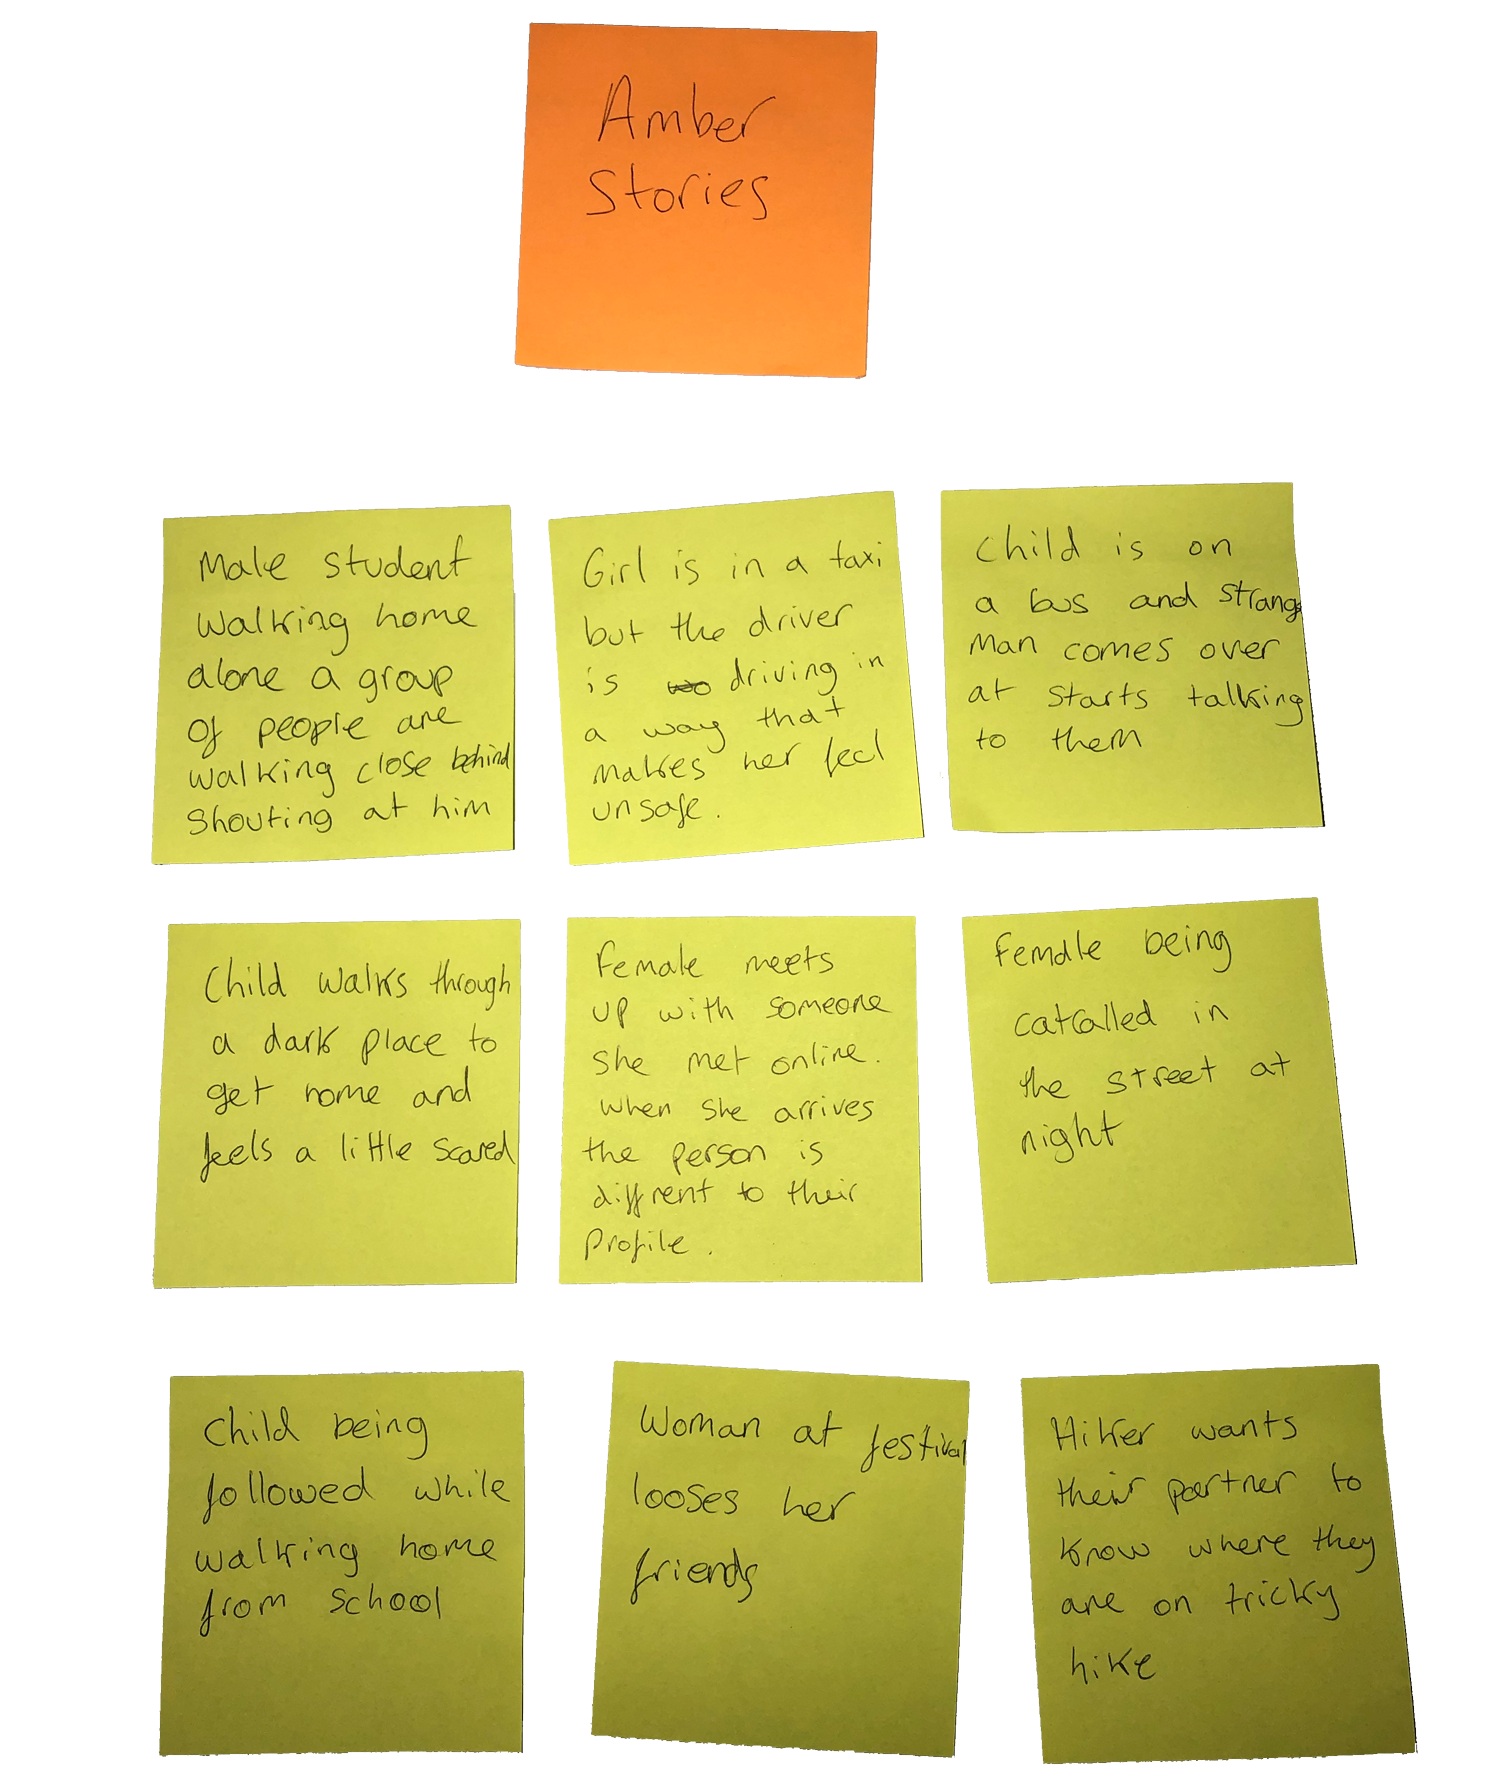 Amber
Stories
Male student
walking home
alone a group
of people are
walking close behind
shouting at him
Girl is in a taxi
but the driver
is driving in
a way that
makes her feel
unsafe.
Child is on
a bus and strange
man comes over
at starts talking
to them
Child walks through
a dark place to
get home and
feels a little scared
Female meets
up with someone
she met online.
when she arrives
the person is
diffrent to their
profile.
Female being
catcalled in
the street at
night
Child being
followed while
walking home
from school
Woman at festival
looses her
friends
Hiker wants
their partner to
know where they
are on tricky
hike